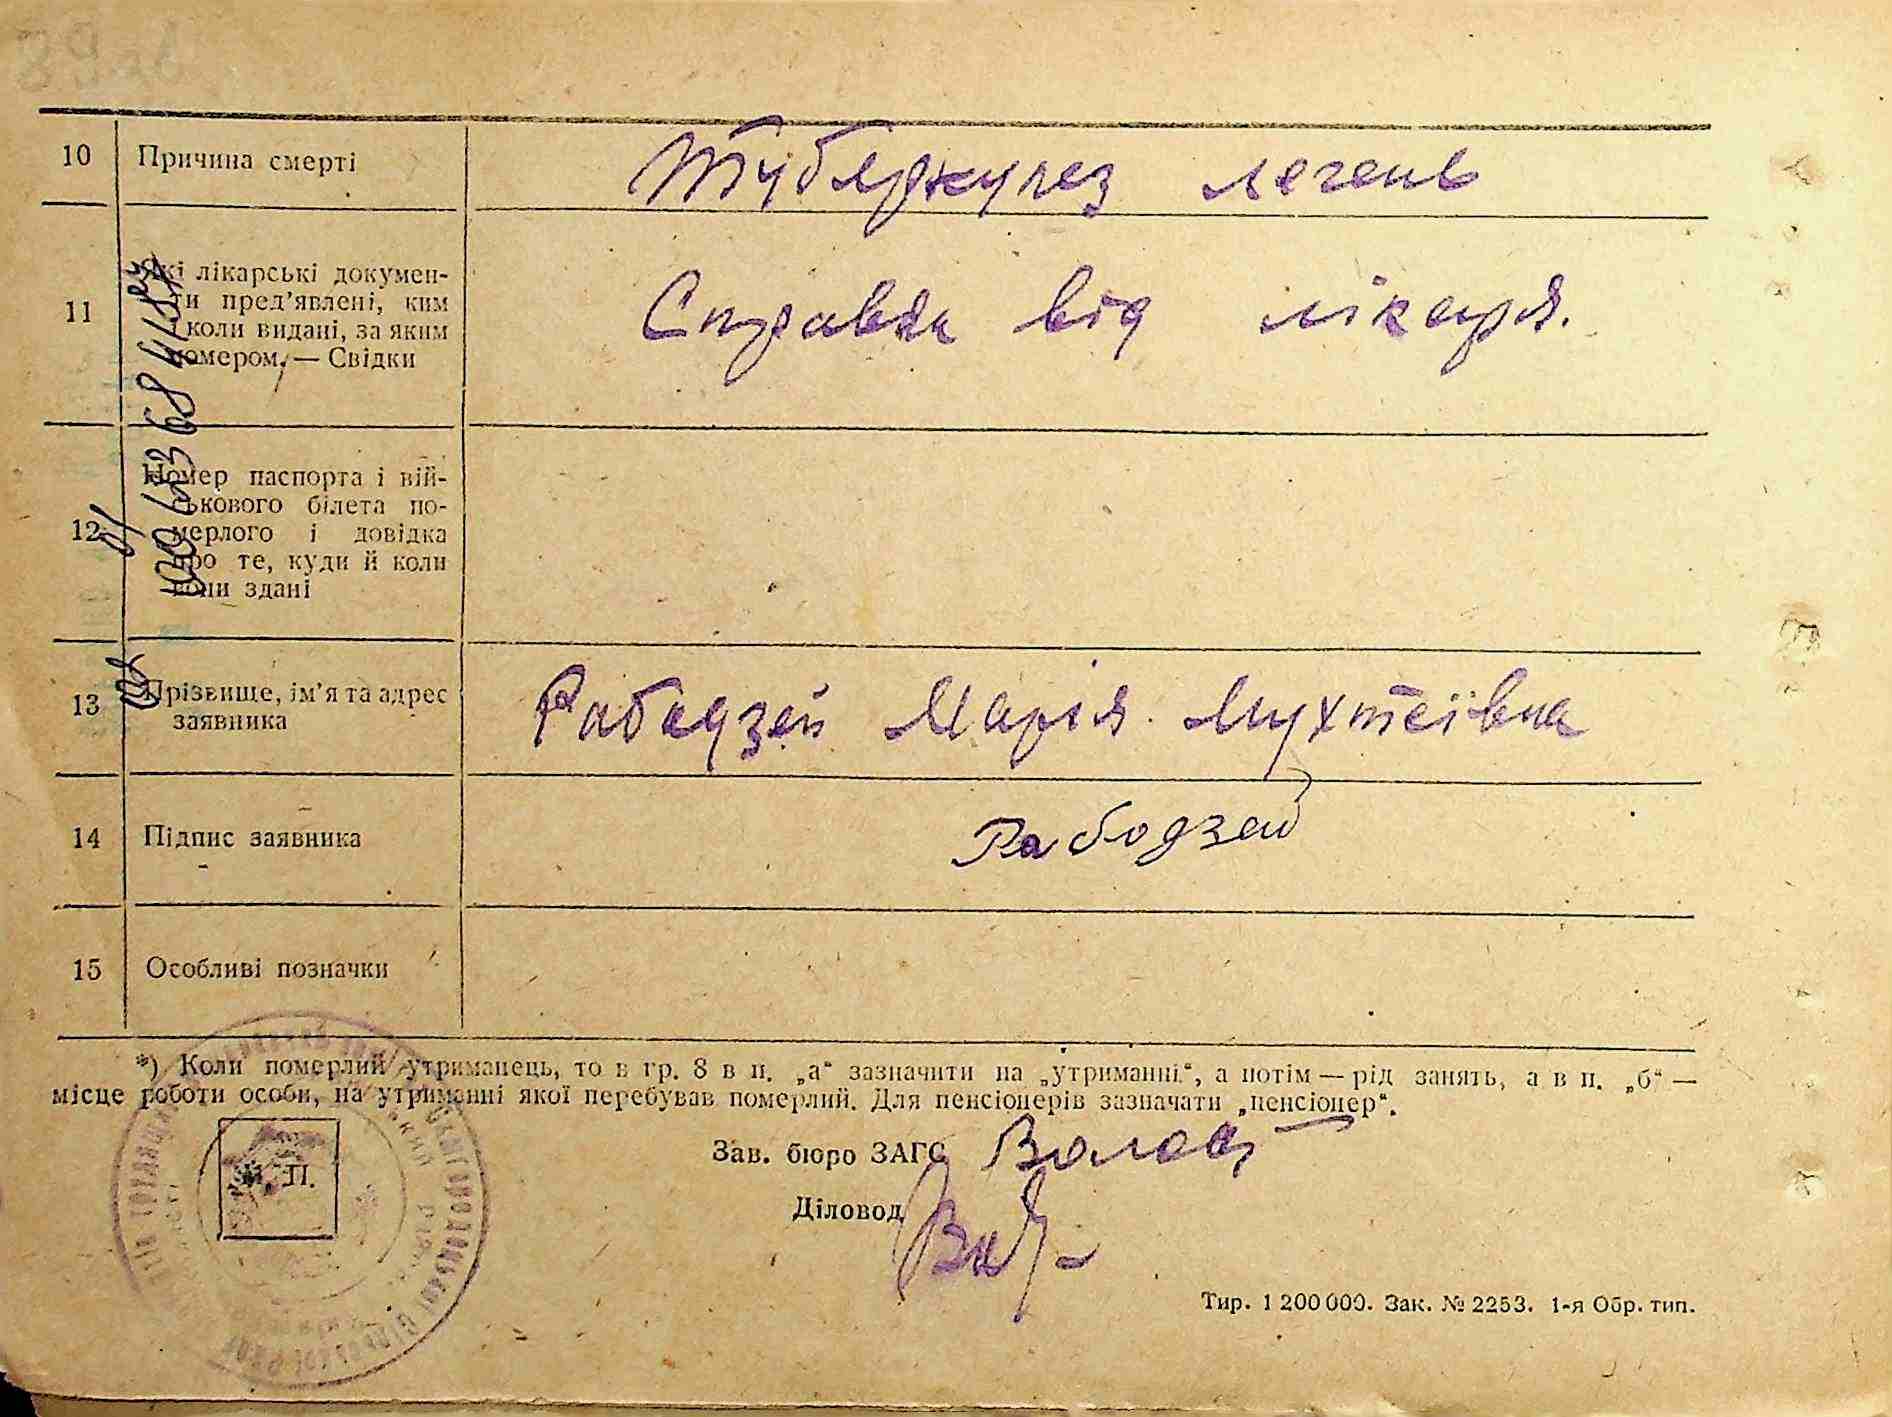 10 Причина смерті Туберкулез легень
11 Які лікарські докумен-
ти пред’явлені, ким
і коли видані, за яким
номером. — Свідки
Справка від лікаря.
12 Номер паспорта і вій-
ськового білета по-
мерлого і довідка
про те, куди й коли
вони здані
13 Прізвище, ім’я та адрес
заявника
Рабадзей Марія
14 Підпис заявника Рабодзей
15 Особливі позначки
*) Коли померлий утриманець, то в гр. 8 в п. „а“ зазначити на „утриманні“, а потім — рід занять, а в п. „б“ —
місце роботи особи, на утриманні якої перебував померлий. Для пенсіонерів зазначати „пенсіонер“.
Зав. бюро ЗАГС
М. П.
Діловод
Тир. 1 200 000. Зак. № 2253. 1-я Обр. тип.